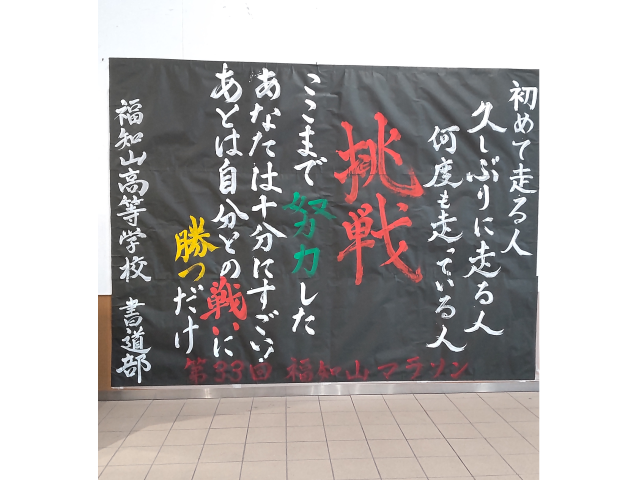 初めて走る人
久しぶりに走る人
何度も走っている人
挑戦
ここまで努力した
あなたは十分にすごい!
あとは自分との戦いに
勝つだけ
福知山高等学校 書道部
第33回 福知山マラソン